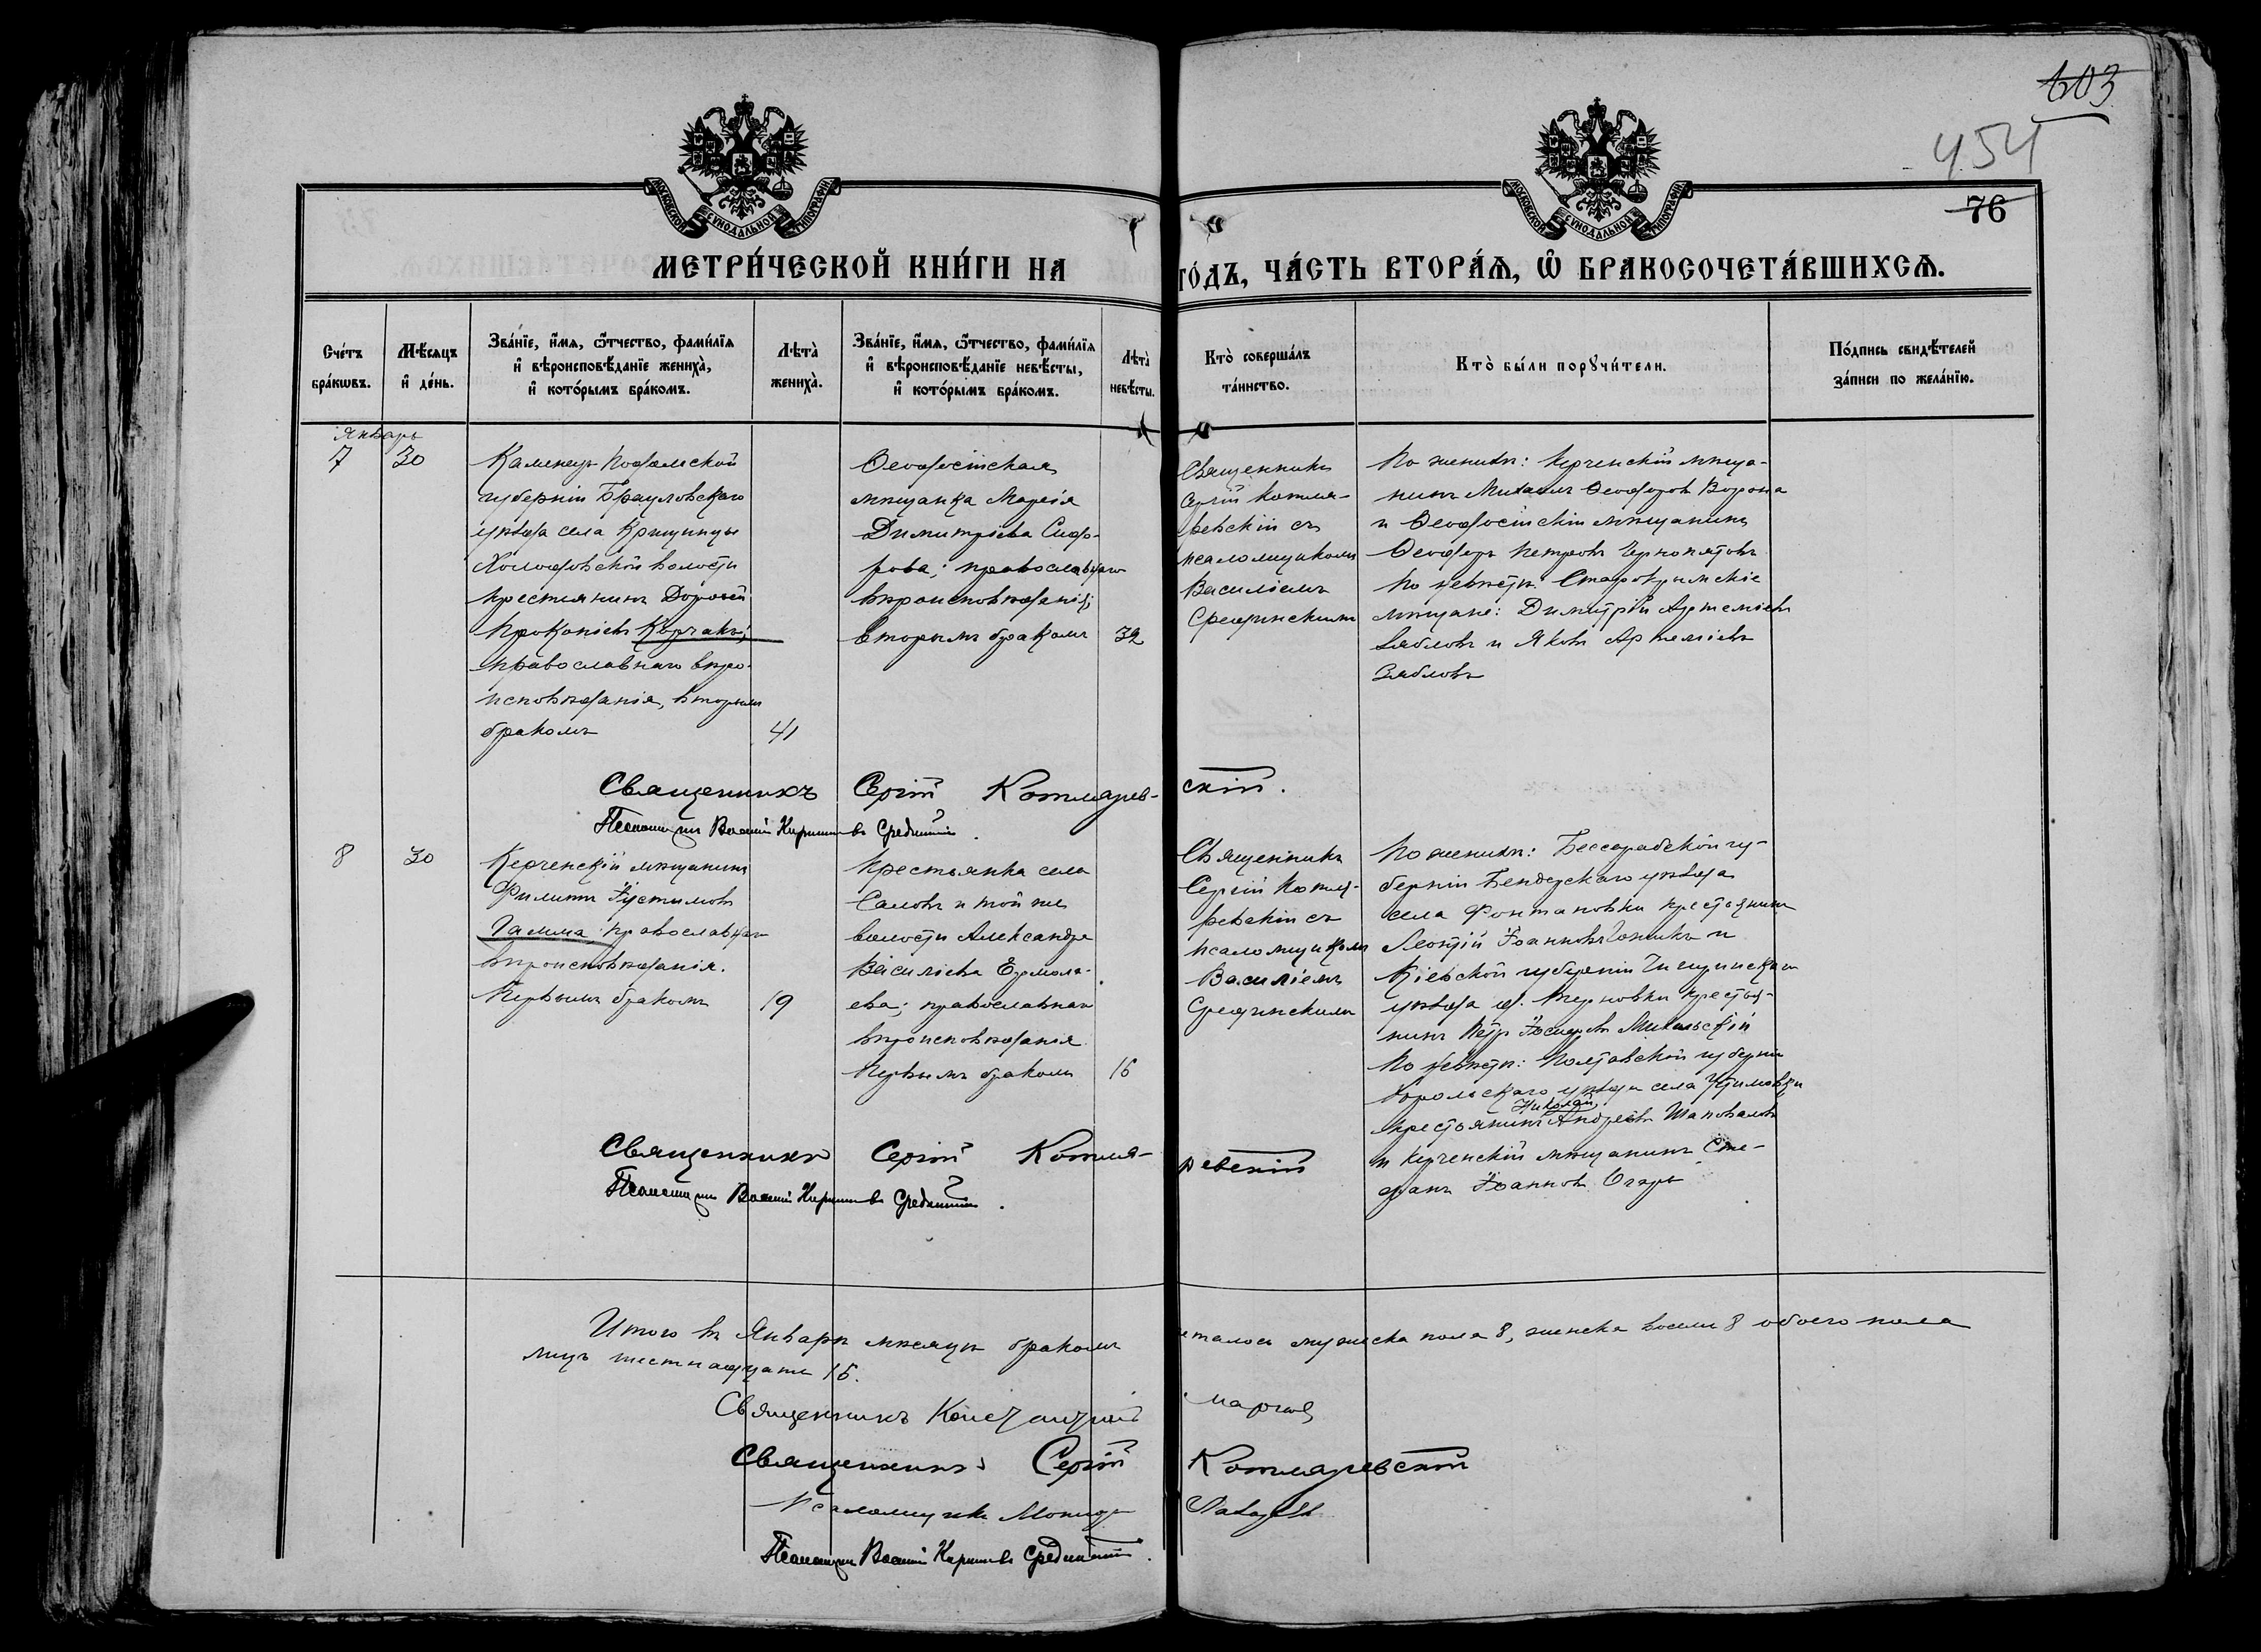 603
454
76
МОСКОВСКОЙ СѴНОДАЛЬНОЙ ТИПОГРАФІИ
МОСКОВСКОЙ СѴНОДАЛЬНОЙ ТИПОГРАФІИ
МЕТРИ́ЧЕСКОЙ КНИ́ГИ НА ГО́ДЪ, ЧА́СТЬ ВТОРА́Ѧ, Ѽ БРАКОСОЧЕТА́ВШИХСѦ.
Сче́тъ бра́кѡвъ.
Мѣ́сѧцъ и҆ де́нь.
Зва́нїе, и҆́мѧ, ѻ҆́тчество, фами́лїѧ
и҆ вѣроисповѣ́данїе жениха̀,
и҆ кото́рымъ бра́комъ.
Лѣта̀ жениха̀.
Зва́нїе, и҆́мѧ, ѻ҆́тчество, фами́лїѧ
и҆ вѣроисповѣ́данїе невѣ́сты,
и҆ кото́рымъ бра́комъ.
Лѣта̀ невѣ́сты.
Кто̀ соверша́лъ
та́инство.
Кто̀ бы́ли порꙋчи́тели.
По́дпись свидѣ́телей
за́писи по жела́нїю.
Январь
7
30
Каменецъ Подольской
губерніи Брацловскаго
уѣзда села Крищинцы
волости
крестьянинъ Дорофей
Прокопіевъ Корчакъ;
православнаго вѣро-
исповѣданія, вторымъ
бракомъ
41
Ѳеодосійская
мѣщанка Марія
Димитріева Сидо-
рова; православнаго
вѣроисповѣданія;
вторымъ бракомъ
32
Священникъ
Сергій Котля-
ревскій съ
псаломщикомъ
Василіемъ
Срединскимъ
По женихѣ: Керченскій мѣща-
нинъ Михаилъ Ѳеодоровъ Ворона
и Ѳеодосійскій мѣщанинъ
Ѳеодоръ Петровъ Чернопятовъ
По невѣстѣ: Старокрымскіе
мѣщане: Димитрій Артеміевъ
Зябловъ и Яковъ Артеміевъ
Зябловъ
Священникъ Сергій Котлярев-скій.
Псаломщикъ Василій Срединскій.
8
30
Керченскій мѣщанинъ
Филиппъ Іустиновъ
Гамма православнаго
вѣроисповѣданія.
Первымъ бракомъ
19
Крестьянка села
и той же
волости Александра
Васильева Ермола-
ева; православнаго
вѣроисповѣданія
Первымъ бракомъ
16
Священникъ
Сергій Котля-
ревскій съ
псаломщикомъ
Василіемъ
Срединскимъ
По женихѣ: Бессарабской гу-
берніи Бендерскаго уѣзда
села Фонтановки крестьянинъ
Леонтій Іоанновъ и
Кіевской губерніи Чигиринскаго
уѣзда д. Терновки крестья-
нинъ Петръ Михальскій
По невѣстѣ: Полтавской губерніи
Хорольскаго уѣзда села Устимовки
Николай
крестьянинъ Андреевъ Шаповаловъ
и Керченскій мѣщанинъ Сте-
фанъ Іоанновъ Огарь
Священникъ Сергій Котля-ревскій
Псаломщикъ Василій Срединскій.
Итого въ Январѣ мѣсяцѣ бракомъ
мужеска пола 8, женска восемь 8 обоего пола
лицъ шестнадцать 16.
Священникъ
Священникъ Сергій Котляревскій
Псаломщикъ
Псаломщикъ Василій Срединскій.